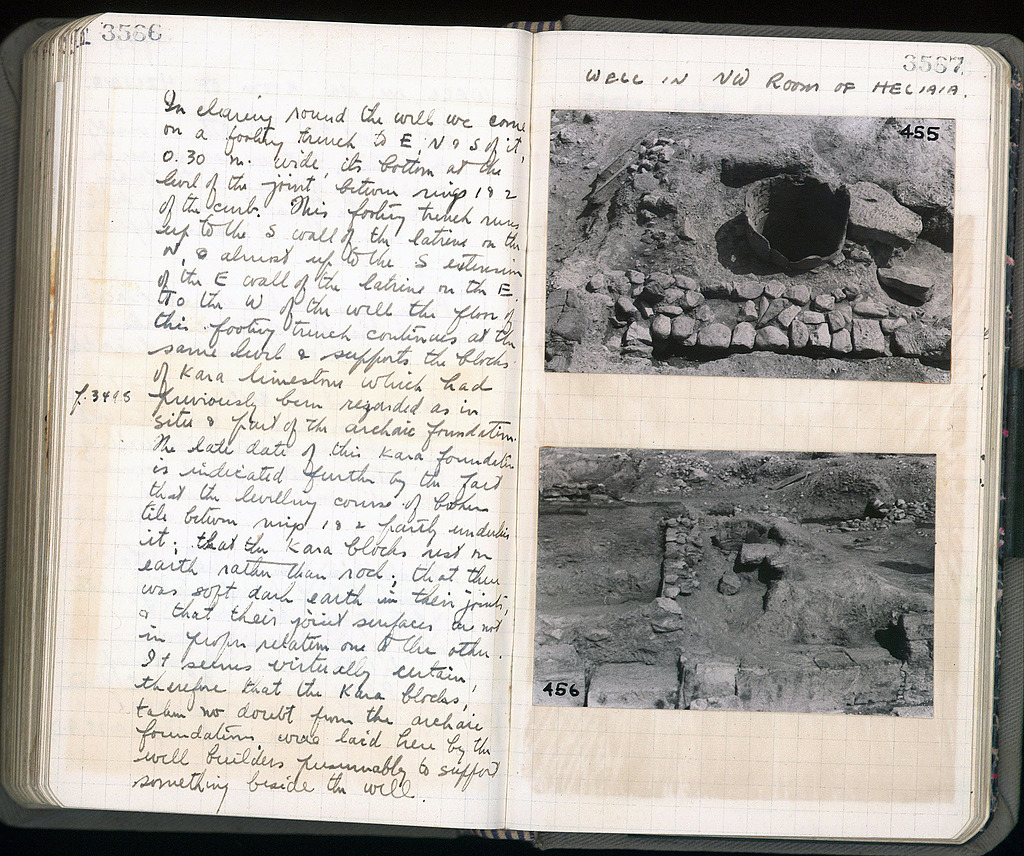 3566
In clearing round the well we come
on a footing trench to E, N & S of it,
0.30 m. wide, its bottom at the
level of the joint between rings 1 & 2
of the curb. This footing trench runs
up to the S wall of the latrine on the
N, & almost up to the S extension
of the E wall of the latrine on the E.
To the W of the well the floor of
this footing trench continues at the
same level & supports the blocks
of Kara limestone which had
previously been regarded as in
situ & part of the archaic foundation.
The late date of this Kara foundation
is indicated further by the fact
that the levelling course of broken
tile between rings 1 & 2 partly underlies
it; that the Kara blocks rest on
earth rather than rock; that there
was soft dark earth in their joints,
& that their joint surfaces are not
in proper relation one to the other.
It seems virtually certain,
therefore that the Kara blocks,
taken no doubt from the archaic
foundations were laid here by the
well builders presumably to support
something beside the well.
3567
WELL IN NW ROOM OF HELIAIA.
455
456